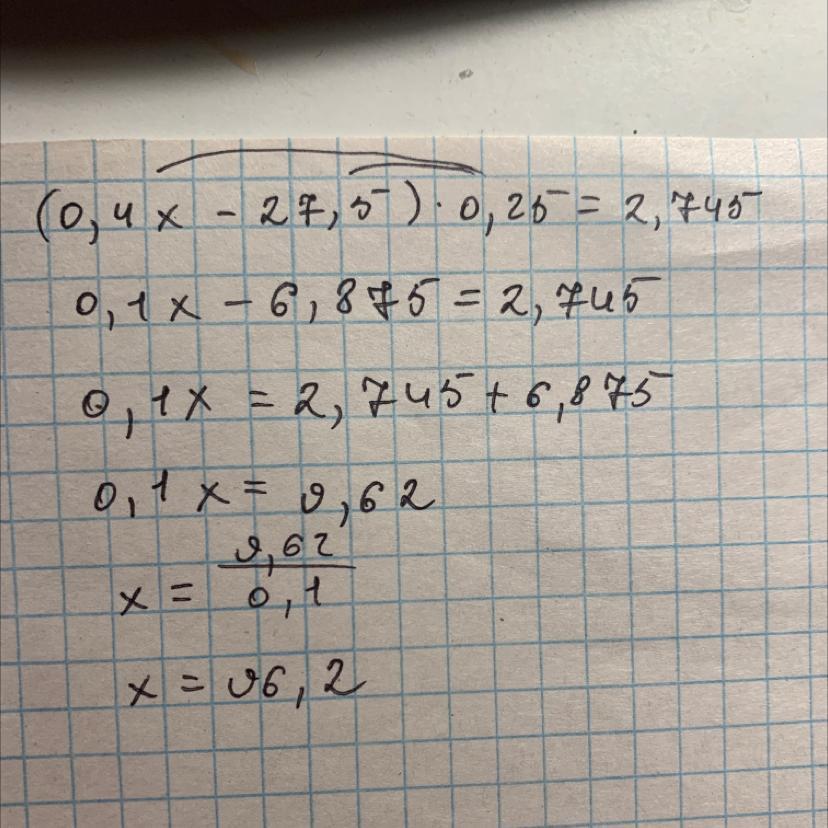 (0,4x - 27,5) · 0,25 = 2,745
0,1x - 6,875 = 2,745
0,1x = 2,745 + 6,875
0,1x = 9,62
x = 9,62 / 0,1
x = 96,2